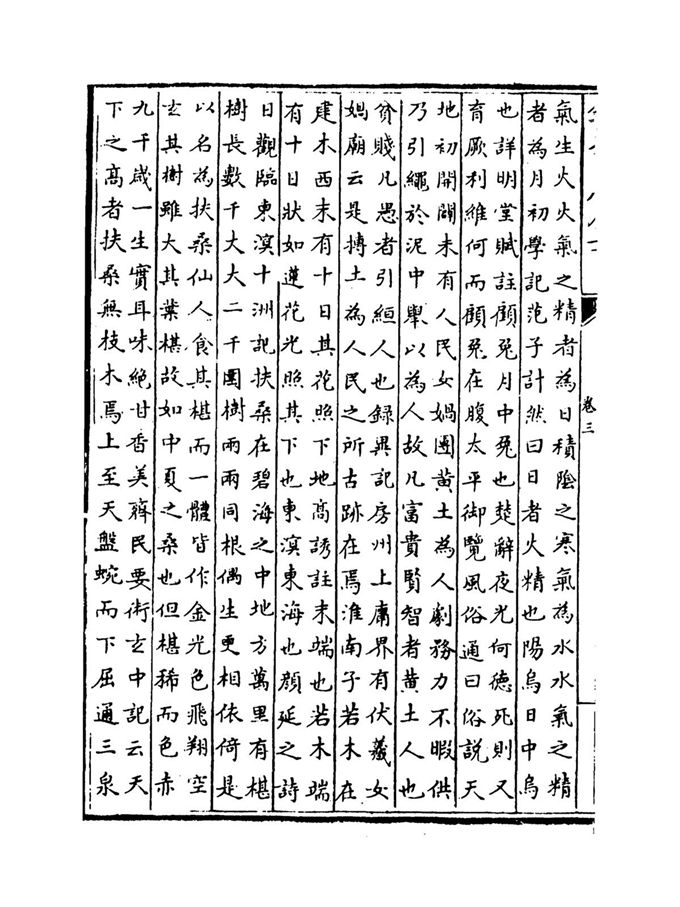 卷三
氣生火火氣之精者為日積陰之寒氣為水水氣之精
者為月初學記范子計然曰日者火精也陽烏日中烏
也詳明堂賦註顧兔月中兔也楚辭夜光何德死則又
育厥利維何而顧兔在腹太平御覽風俗通曰俗說天
地初開闢未有人民女媧團黃土為人劇務力不暇供
乃引繩於泥中舉以為人故凡富貴賢智者黃土人也
貧賤凡愚者引縆人也錄異記房州上庸界有伏羲女
媧廟云是摶土為人民之所古跡在焉淮南子若木在
建木西末有十日其花照下地高誘註末端也若木端
有十日狀如蓮花光照其下也東溟東海也顏延之詩
日觀臨東溟十洲記扶桑在碧海之中地方萬里有椹
樹長數千丈大二千圍樹兩兩同根偶生更相依倚是
以名為扶桑仙人食其椹而一體皆作金光色飛翔空
玄其樹雖大其葉椹故如中夏之桑也但椹稀而色赤
九千歲一生實耳味絕甘香美齊民要術玄中記云天
下之高者扶桑無枝木焉上至天盤蜿而下屈通三泉